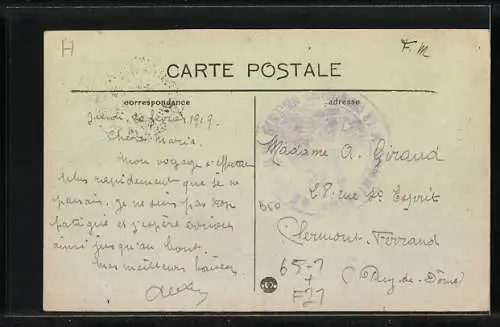 H
F. M
CARTE POSTALE
correspondance
adresse
Jeudi 20 février 1919.
Chère Maria.
Mon voyage s'effectue
plus rapidement que je ne
pensais. Je ne suis pas trop
fatigué et j'espère arriver
ainsi jusqu'au bout.
Mes meilleurs baisers
Madame A. Giraud
28 rue St Esprit
Clermont-Ferrand
(Puy-de-Dôme)
B50
65-1
+
F21